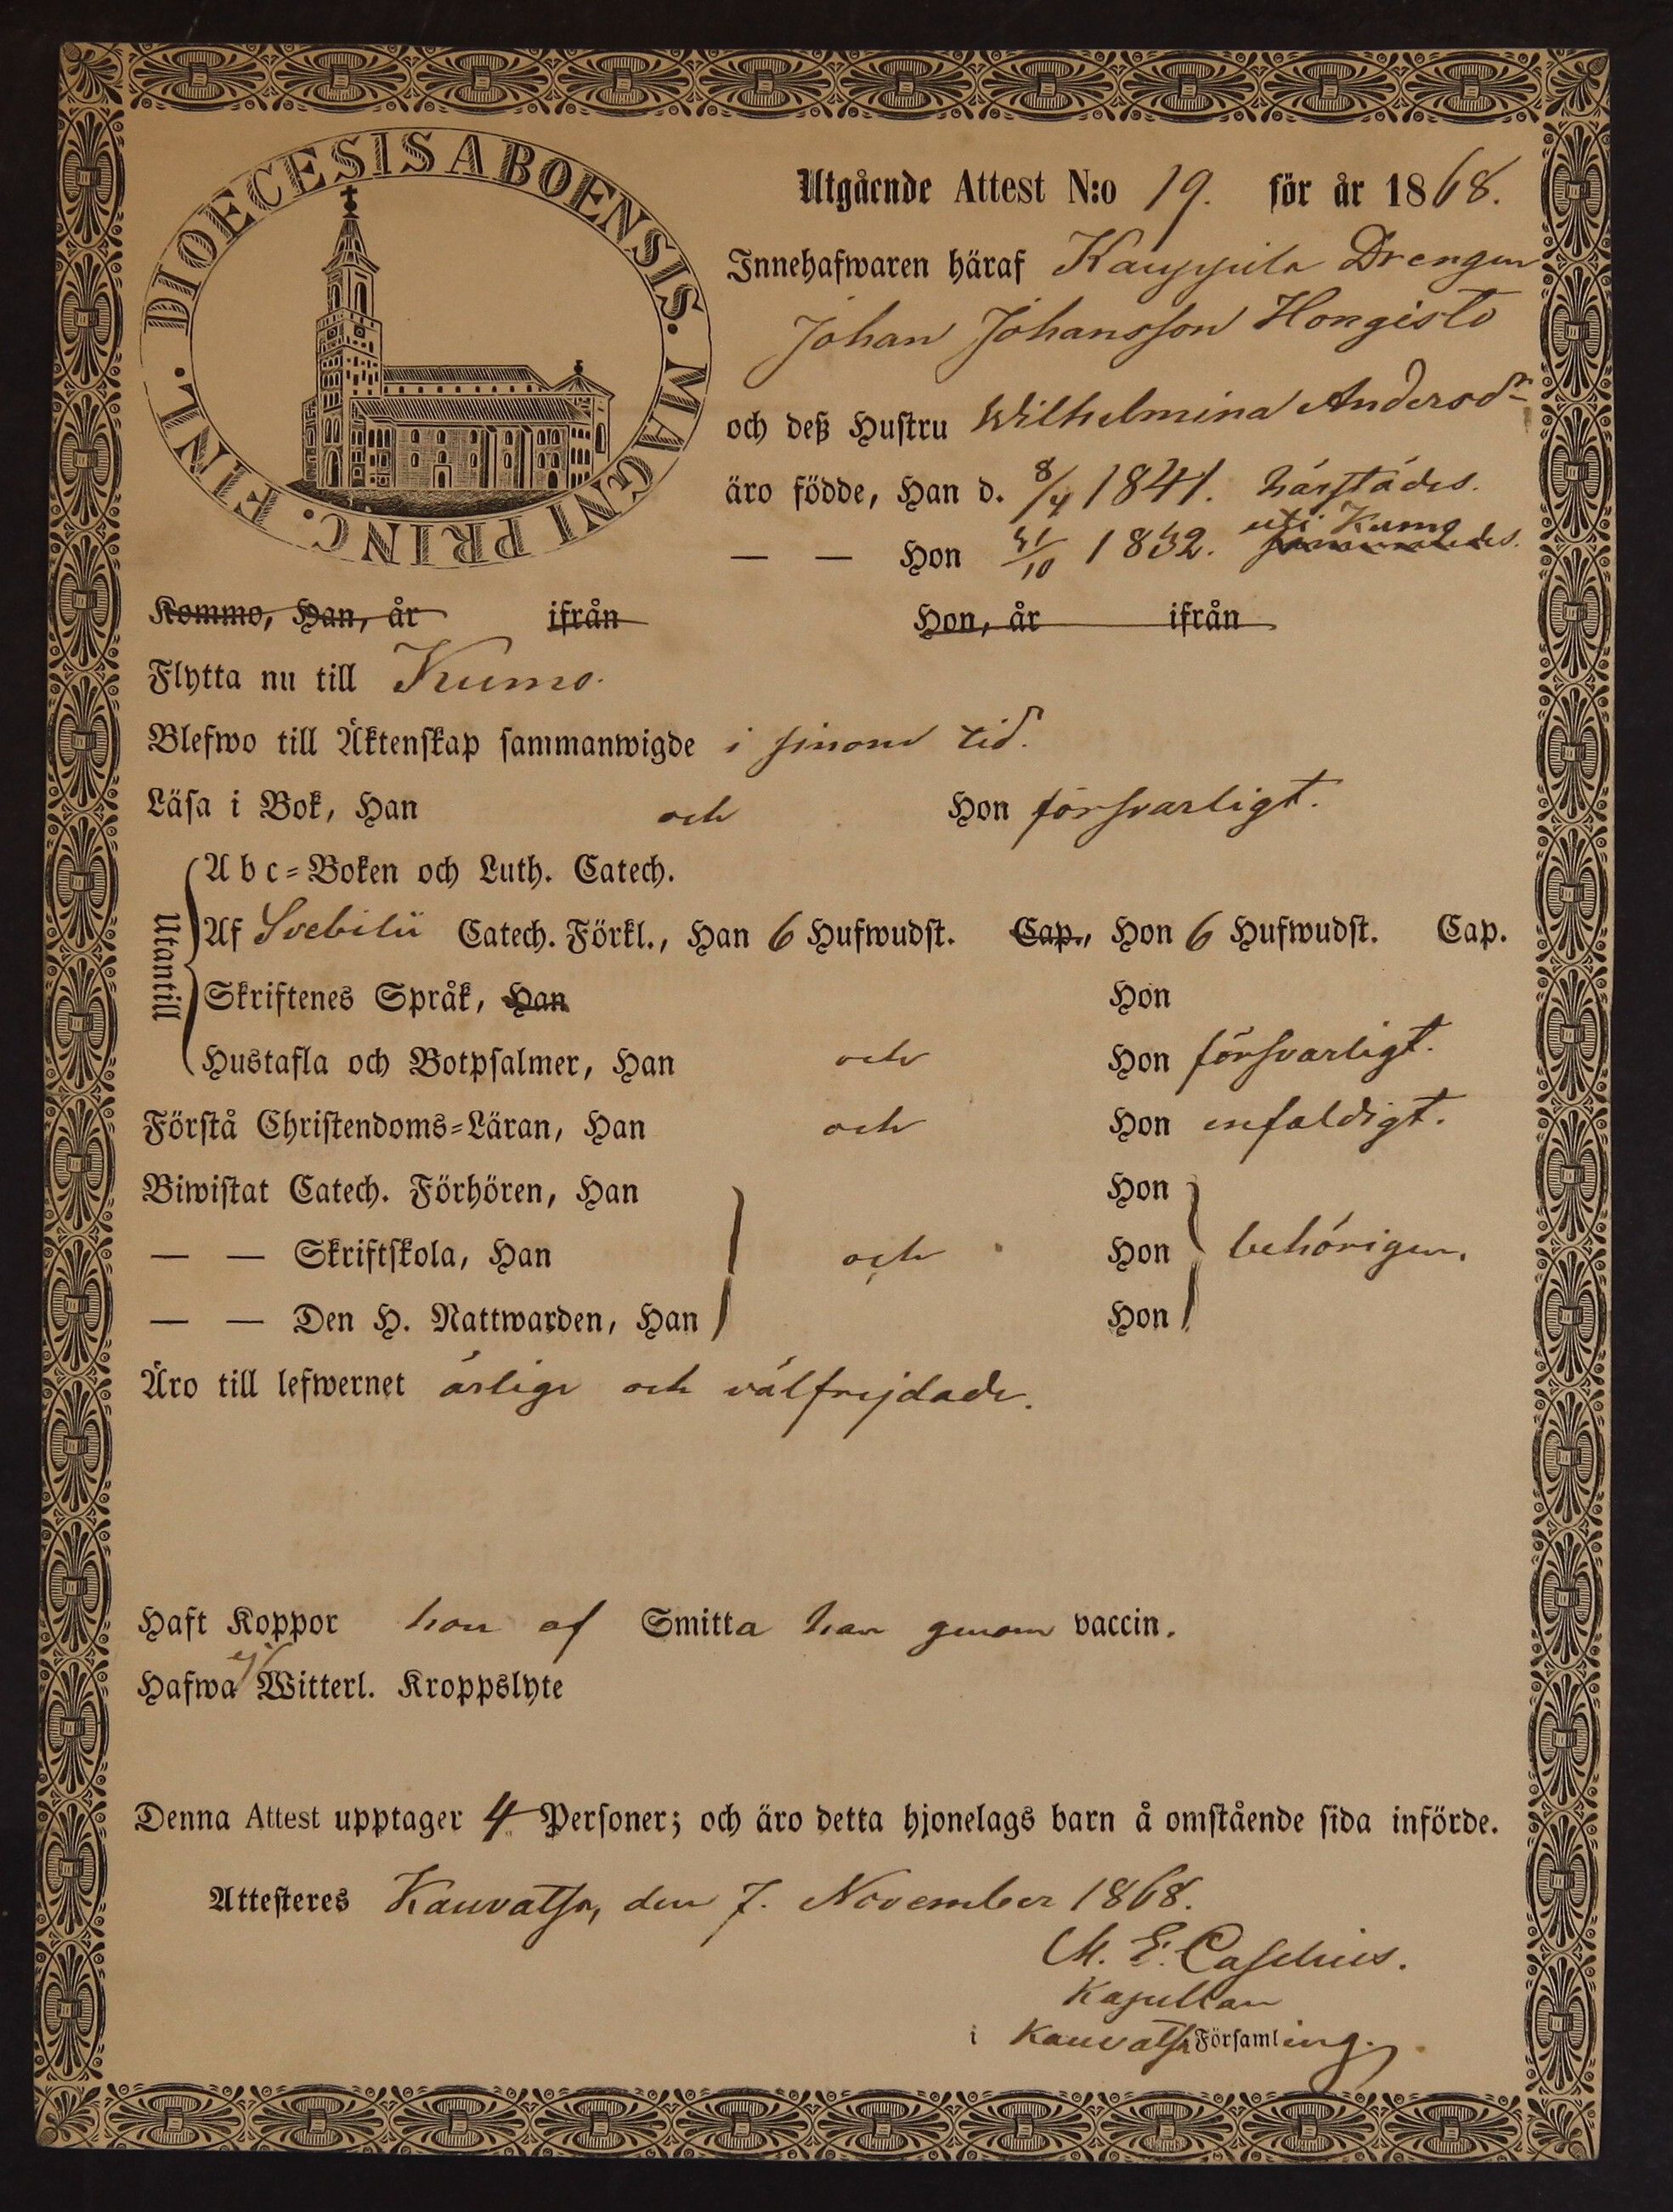 DIOECESIS ABOENSIS. MAGNI PRINC. FINL.
Utgående Attest N:o 19. för år 1868.
Innehafwaren häraf Kauppila Drengen
Johan Johansson Hongisto
och deß Hustru Wilhelmina Andersdr
äro födde, Han d. 8/4 1841. härstädes.
— — Hon 31/10 1832. uti Kumo
Kommo, Han, år ifrån Hon, år ifrån
Flytta nu till Kumo.
Blefwo till Äktenskap sammanwigde i sinom tid.
Läsa i Bok, Han och Hon försvarligt.
Utantill
A b c-Boken och Luth. Catech.
Af Svebilii Catech. Förkl., Han 6 Hufwudst. Cap., Hon 6 Hufwudst. Cap.
Skriftenes Språk, Han Hon
Hustafla och Botpsalmer, Han och Hon försvarligt.
Förstå Christendoms-Läran, Han och Hon enfaldigt.
Biwistat Catech. Förhören, Han Hon
— — Skriftskola, Han och Hon behörigen.
— — Den H. Nattwarden, Han Hon
Äro till lefwernet ärlige och välfrejdade.
Haft Koppor hon af Smitta han genom vaccin.
Hafwa ej Witterl. Kroppslyte
Denna Attest upptager 4 Personer; och äro detta hjonelags barn å omstående sida införde.
Attesteres Kauvatsa, den 7. November 1868.
M. E. Caselius.
Kapellan
i Kauvatsa Församling.